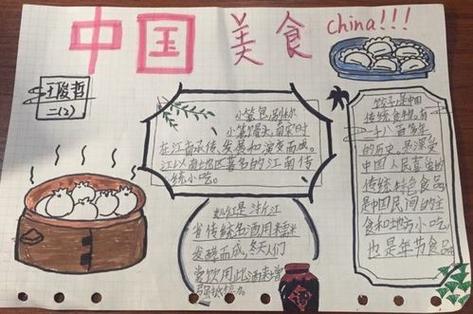 中国美食 china!!!
二(2)
小笼包,别称
小笼馒头,南宋时
在江南承传、发展和演变而成。
江以南地区著名的江南传
统小吃。
饺子,是中国
传统食物,有一
千八百多年
的历史,是深受
中国人民喜爱的
传统特色食品
是中国民间的主
食和地方小吃
也是年节食品
黄酒是浙江
省传统名酒用
发酵而成,冬天人们
常饮用此酒来增